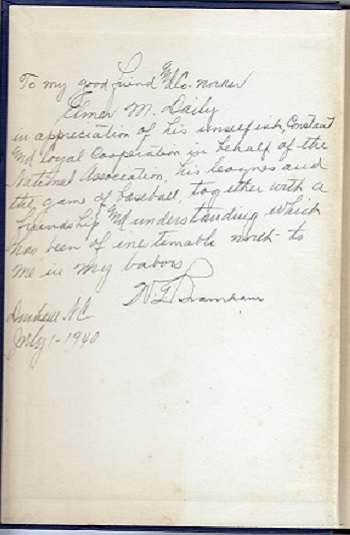 To my good friend and Co. worker
Elmer M. Daily
in appreciation of his unselfish, Constant
and loyal Cooperation in behalf of the
National Association, his leagues and
the game of baseball, together with a
friendship and understanding which
has been of inestimable worth to
me in my labors
W. G. Bramham
Durham N.C.
July 1 - 1940